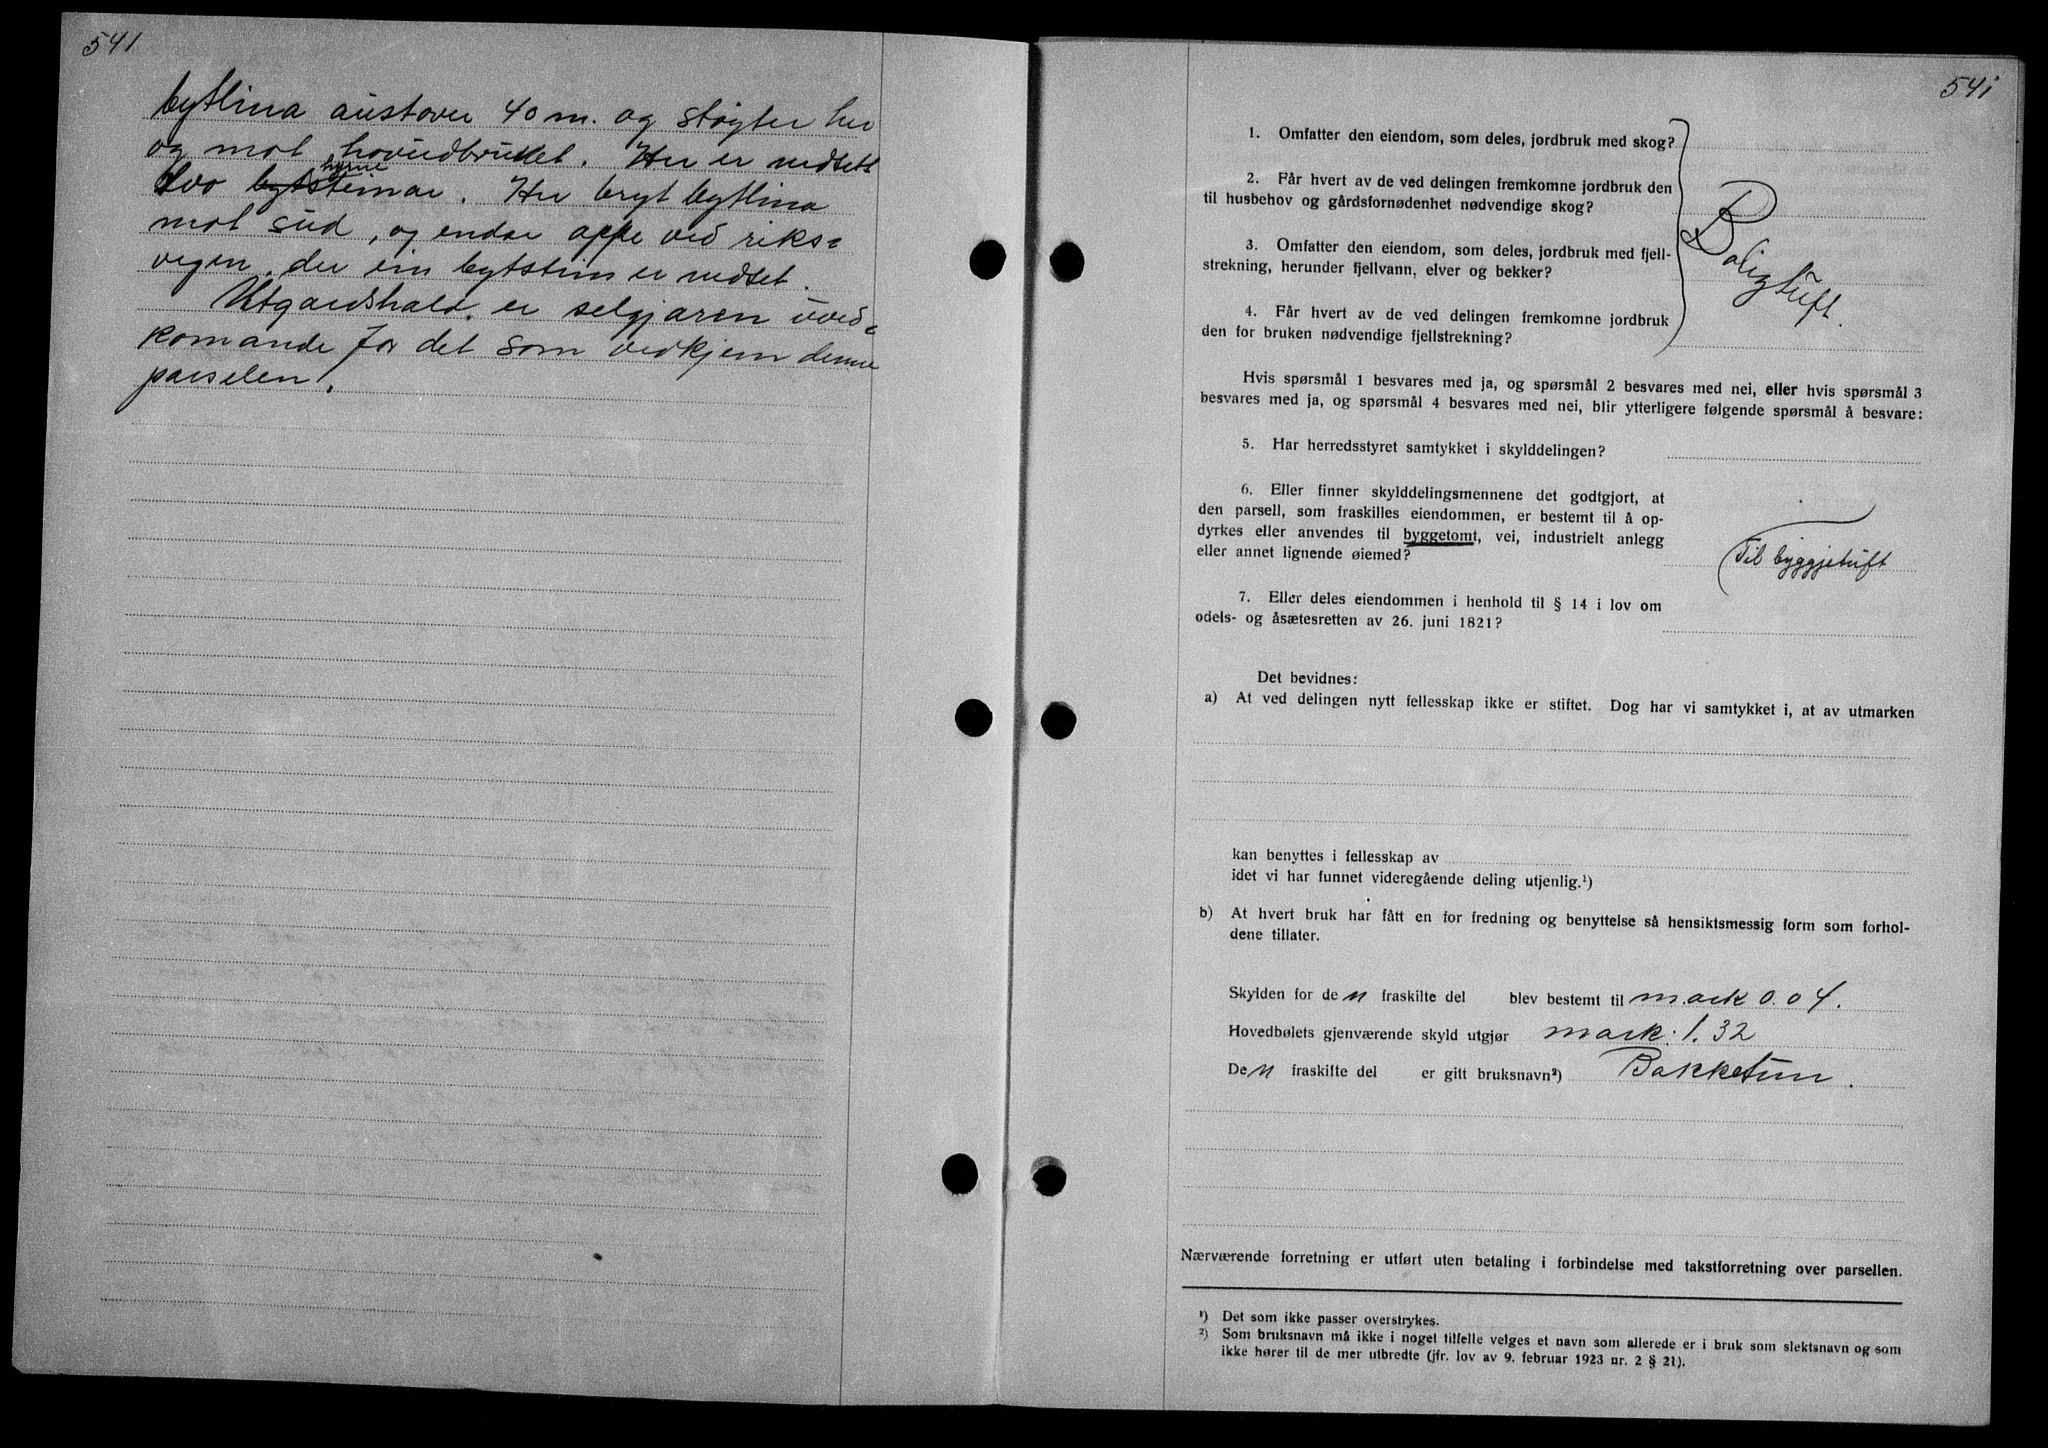 541
bytlina austover 40 m. og støyter her
og mot hovudbruket. Her er nedsett
tvo byt hyrne steinar. Her bryt bytlina
mot sud, og endar oppe ved riks=
vegen, der ein bytstein er nedset.
Utgardshald. er seljaren uved=
komande for det som vedkjem denne
parselen.
541
1. Omfatter den eiendom, som deles, jordbruk med skog?
2. Får hvert av de ved delingen fremkomne jordbruk den
til husbehov og gårdsfornødenhet nødvendige skog?
3. Omfatter den eiendom, som deles, jordbruk med fjell-
strekning, herunder fjellvann, elver og bekker?
4. Får hvert av de ved delingen fremkomne jordbruk
den for bruken nødvendige fjellstrekning?
Boligtuft.
Hvis spørsmål 1 besvares med ja, og spørsmål 2 besvares med nei, eller hvis spørsmål 3
besvares med ja, og spørsmål 4 besvares med nei, blir ytterligere følgende spørsmål å besvare:
5. Har herredsstyret samtykket i skylddelingen?
6. Eller finner skylddelingsmennene det godtgjort, at
den parsell, som fraskilles eiendommen, er bestemt til å op-
dyrkes eller anvendes til byggetomt, vei, industrielt anlegg
eller annet lignende øiemed?
Til byggjetuft
7. Eller deles eiendommen i henhold til § 14 i lov om
odels- og åsætesretten av 26. juni 1821?
Det bevidnes:
a) At ved delingen nytt fellesskap ikke er stiftet. Dog har vi samtykket i, at av utmarken
kan benyttes i fellesskap av
idet vi har funnet videregående deling utjenlig.¹)
b) At hvert bruk har fått en for fredning og benyttelse så hensiktsmessig form som forhol-
dene tillater.
Skylden for de n fraskilte del blev bestemt til mark 0.04.
Hovedbølets gjenværende skyld utgjør mark: 1.32
De n fraskilte del er gitt bruksnavn²) Bakketun.
Nærværende forretning er utført uten betaling i forbindelse med takstforretning over parsellen.
¹) Det som ikke passer overstrykes.
²) Som bruksnavn må ikke i noget tilfelle velges et navn som allerede er i bruk som slektsnavn og som
ikke hører til de mer utbredte (jfr. lov av 9. februar 1923 nr. 2 § 21).